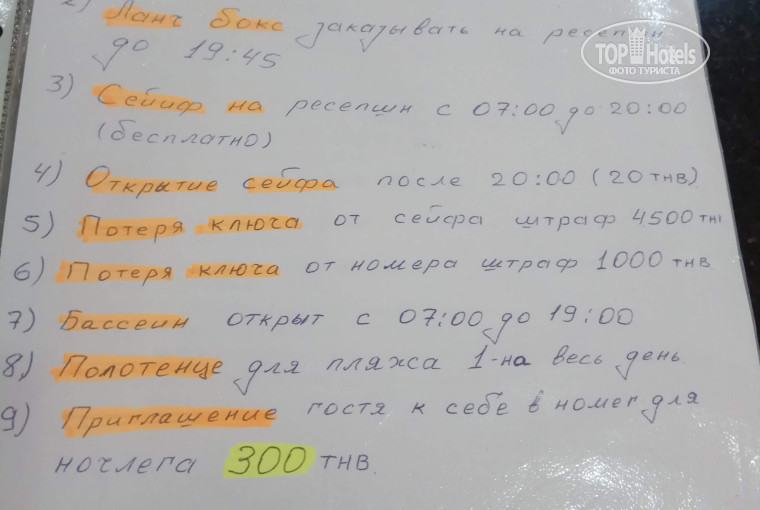 2) Ланч бокс заказывать на ресепшн
до 19:45
TOP Hotels
ФОТО ТУРИСТА
3) Сейиф на ресепшн с 07:00 до 20:00
(бесплатно)
4) Открытие сейфа после 20:00 (20 тнв)
5) Потеря ключа от сейфа штраф 4500 тн
6) Потеря ключа от номера штраф 1000 тнв
7) Бассеин открыт с 07:00 до 19:00
8) Полотенце для пляжа 1-на весь день
9) Приглашение гостя к себе в номер для
ночлега 300 тнв.